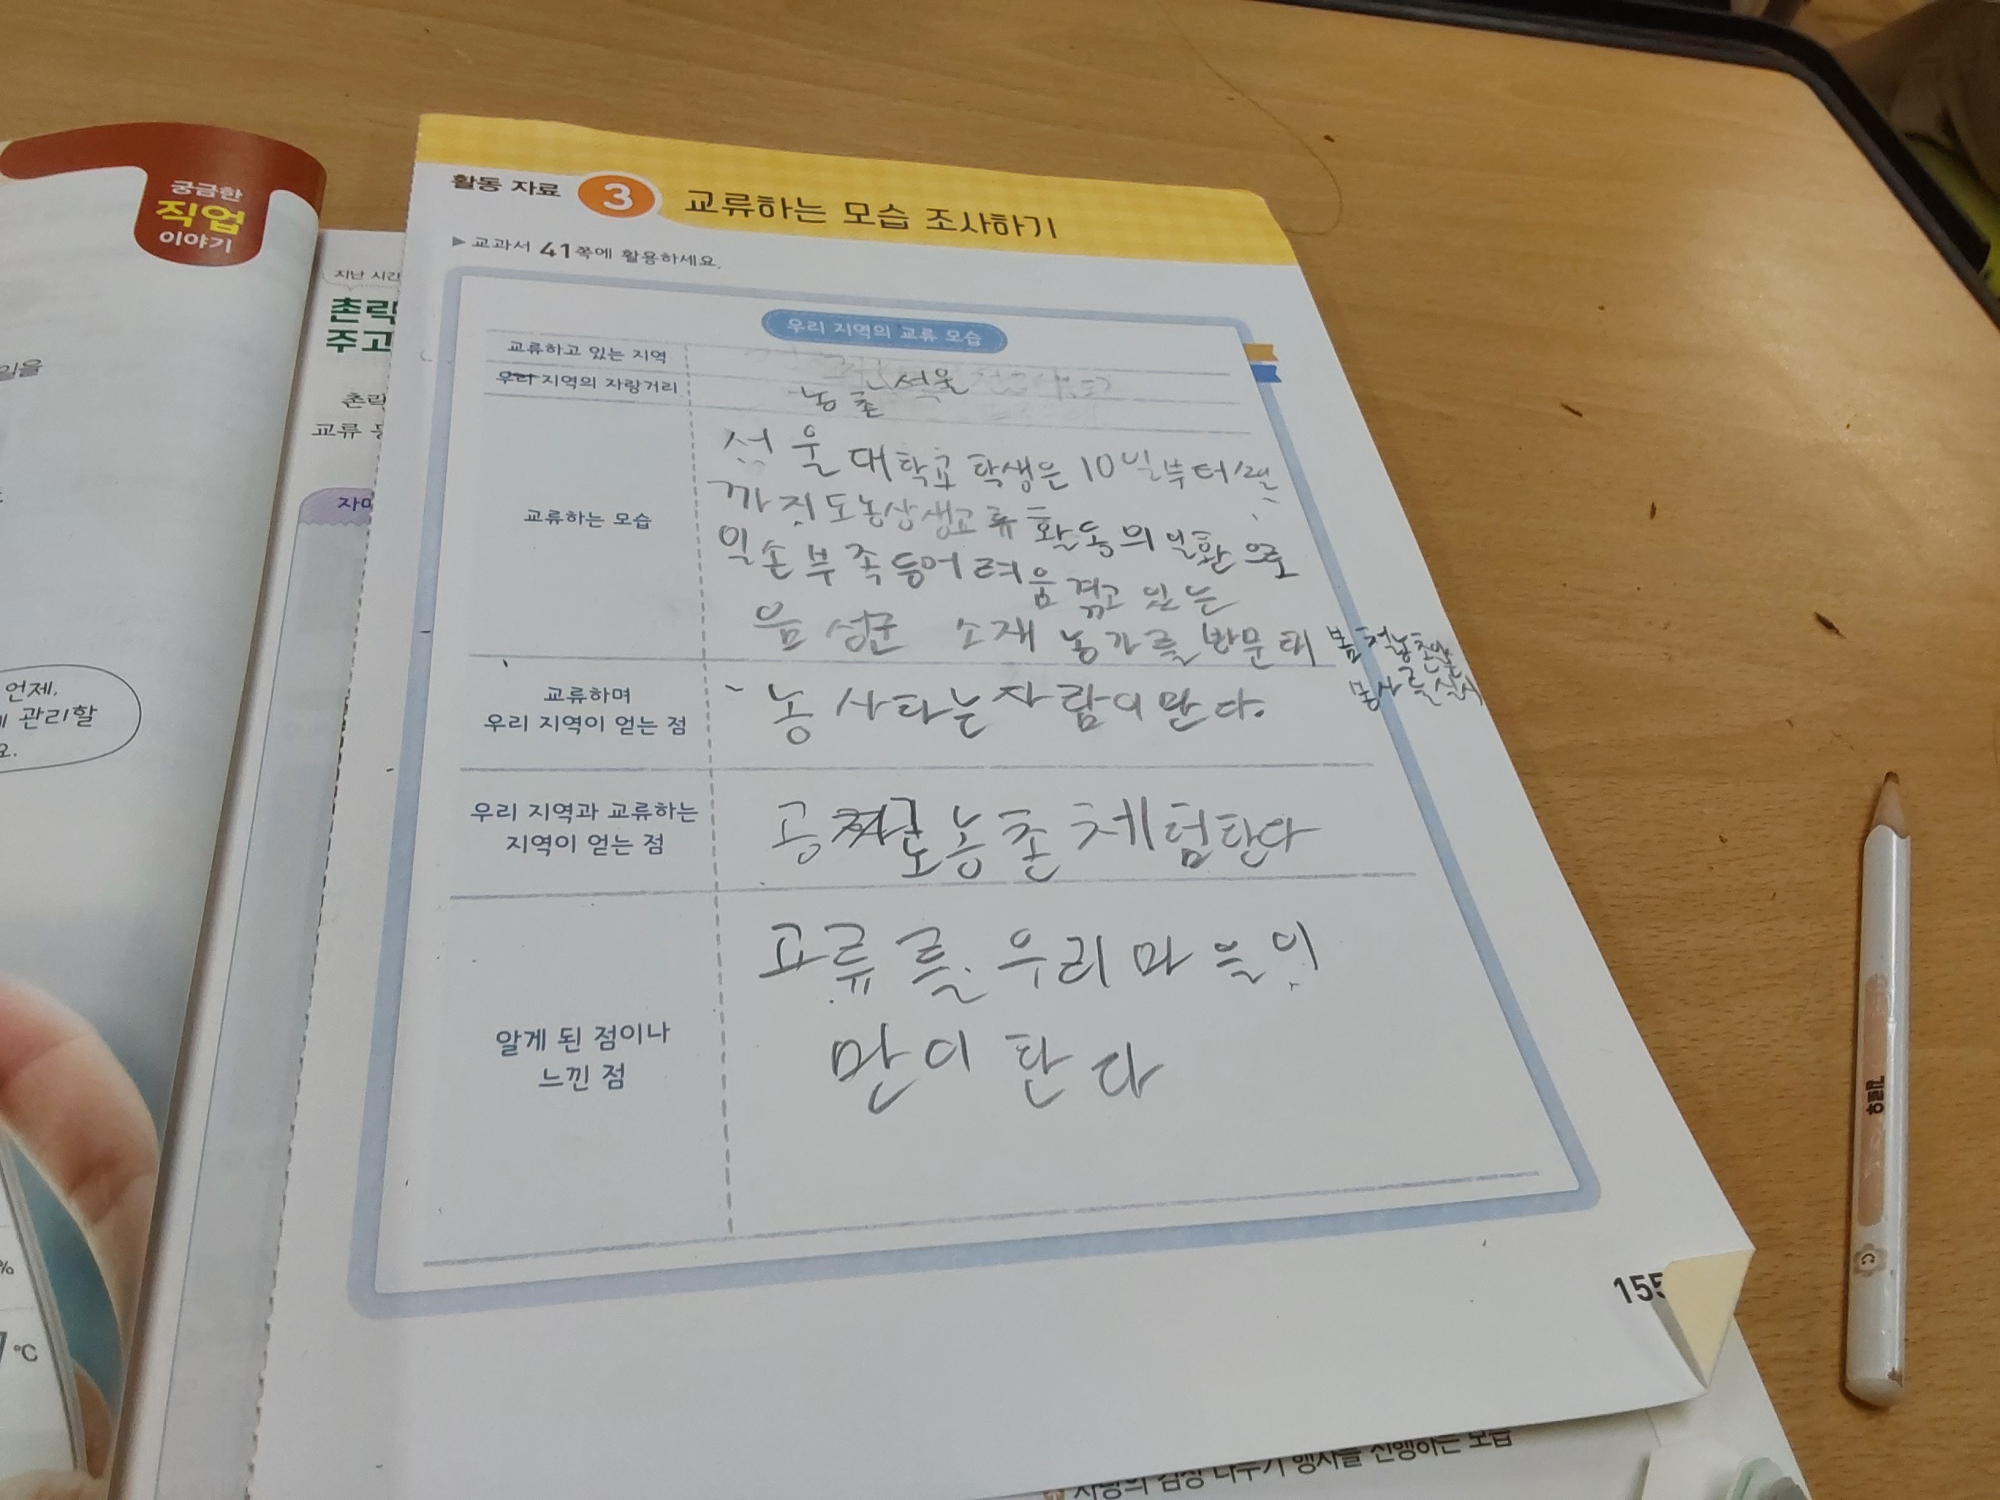 궁금한
직업
이야기
일을
언제,
관리할
요.
%
℃
지난 시간
촌락
주고
촌락
교류
자매
활동 자료 3 교류하는 모습 조사하기
▶ 교과서 41쪽에 활용하세요.
우리 지역의 교류 모습
교류하고 있는 지역
서울
우리 지역의 자랑거리
농촌
교류하는 모습
서울대학교 학생은 10일부터
까지 도농상생교류 활동의 일환으로
일손부족등어려움겪고 있는
음성군 소재 농가를 방문해
봄철농촌
봉사
교류하며
우리 지역이 얻는 점
농사하는사람이만다.
우리 지역과 교류하는
지역이 얻는 점
공짜로농촌체험한다
알게 된 점이나
느낀 점
교류를 우리마을이
만이 한다
155
사랑의 김장 나누기 행사를 진행하는 모습